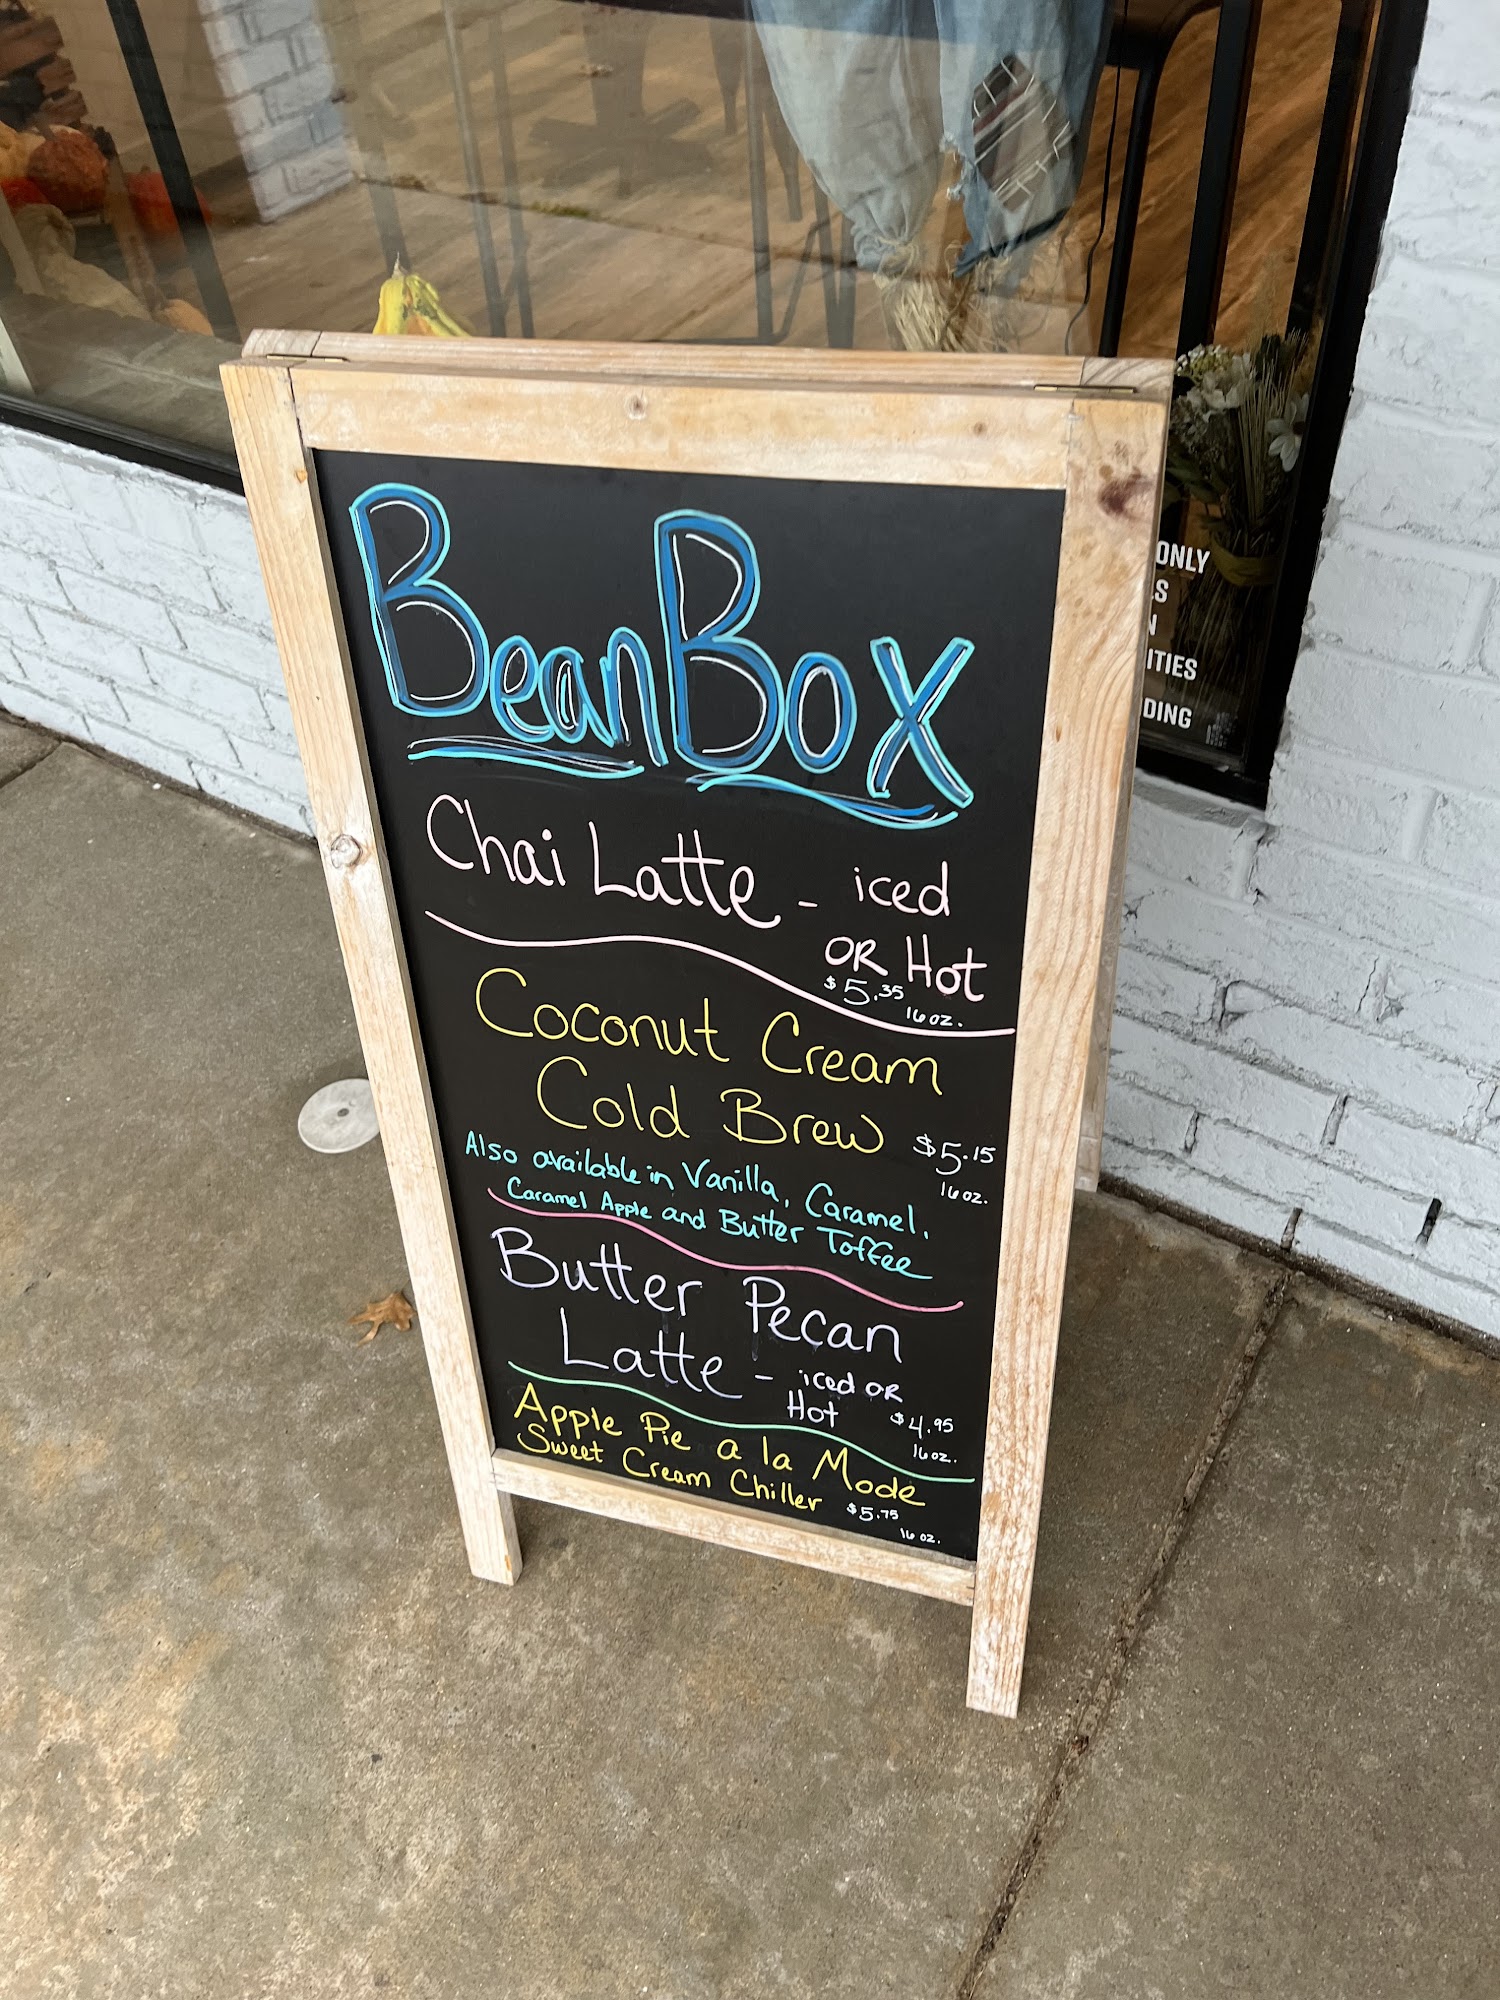 BeanBox
Chai Latte - iced
OR Hot
$5.35
16 oz.
Coconut Cream
Cold Brew
$5.15
16 oz.
Also available in Vanilla, Caramel,
Caramel Apple and Butter Toffee
Butter Pecan
Latte - iced OR
Hot
$4.95
16 oz.
Apple Pie a la Mode
Sweet Cream Chiller
$5.75
16 oz.
ONLY